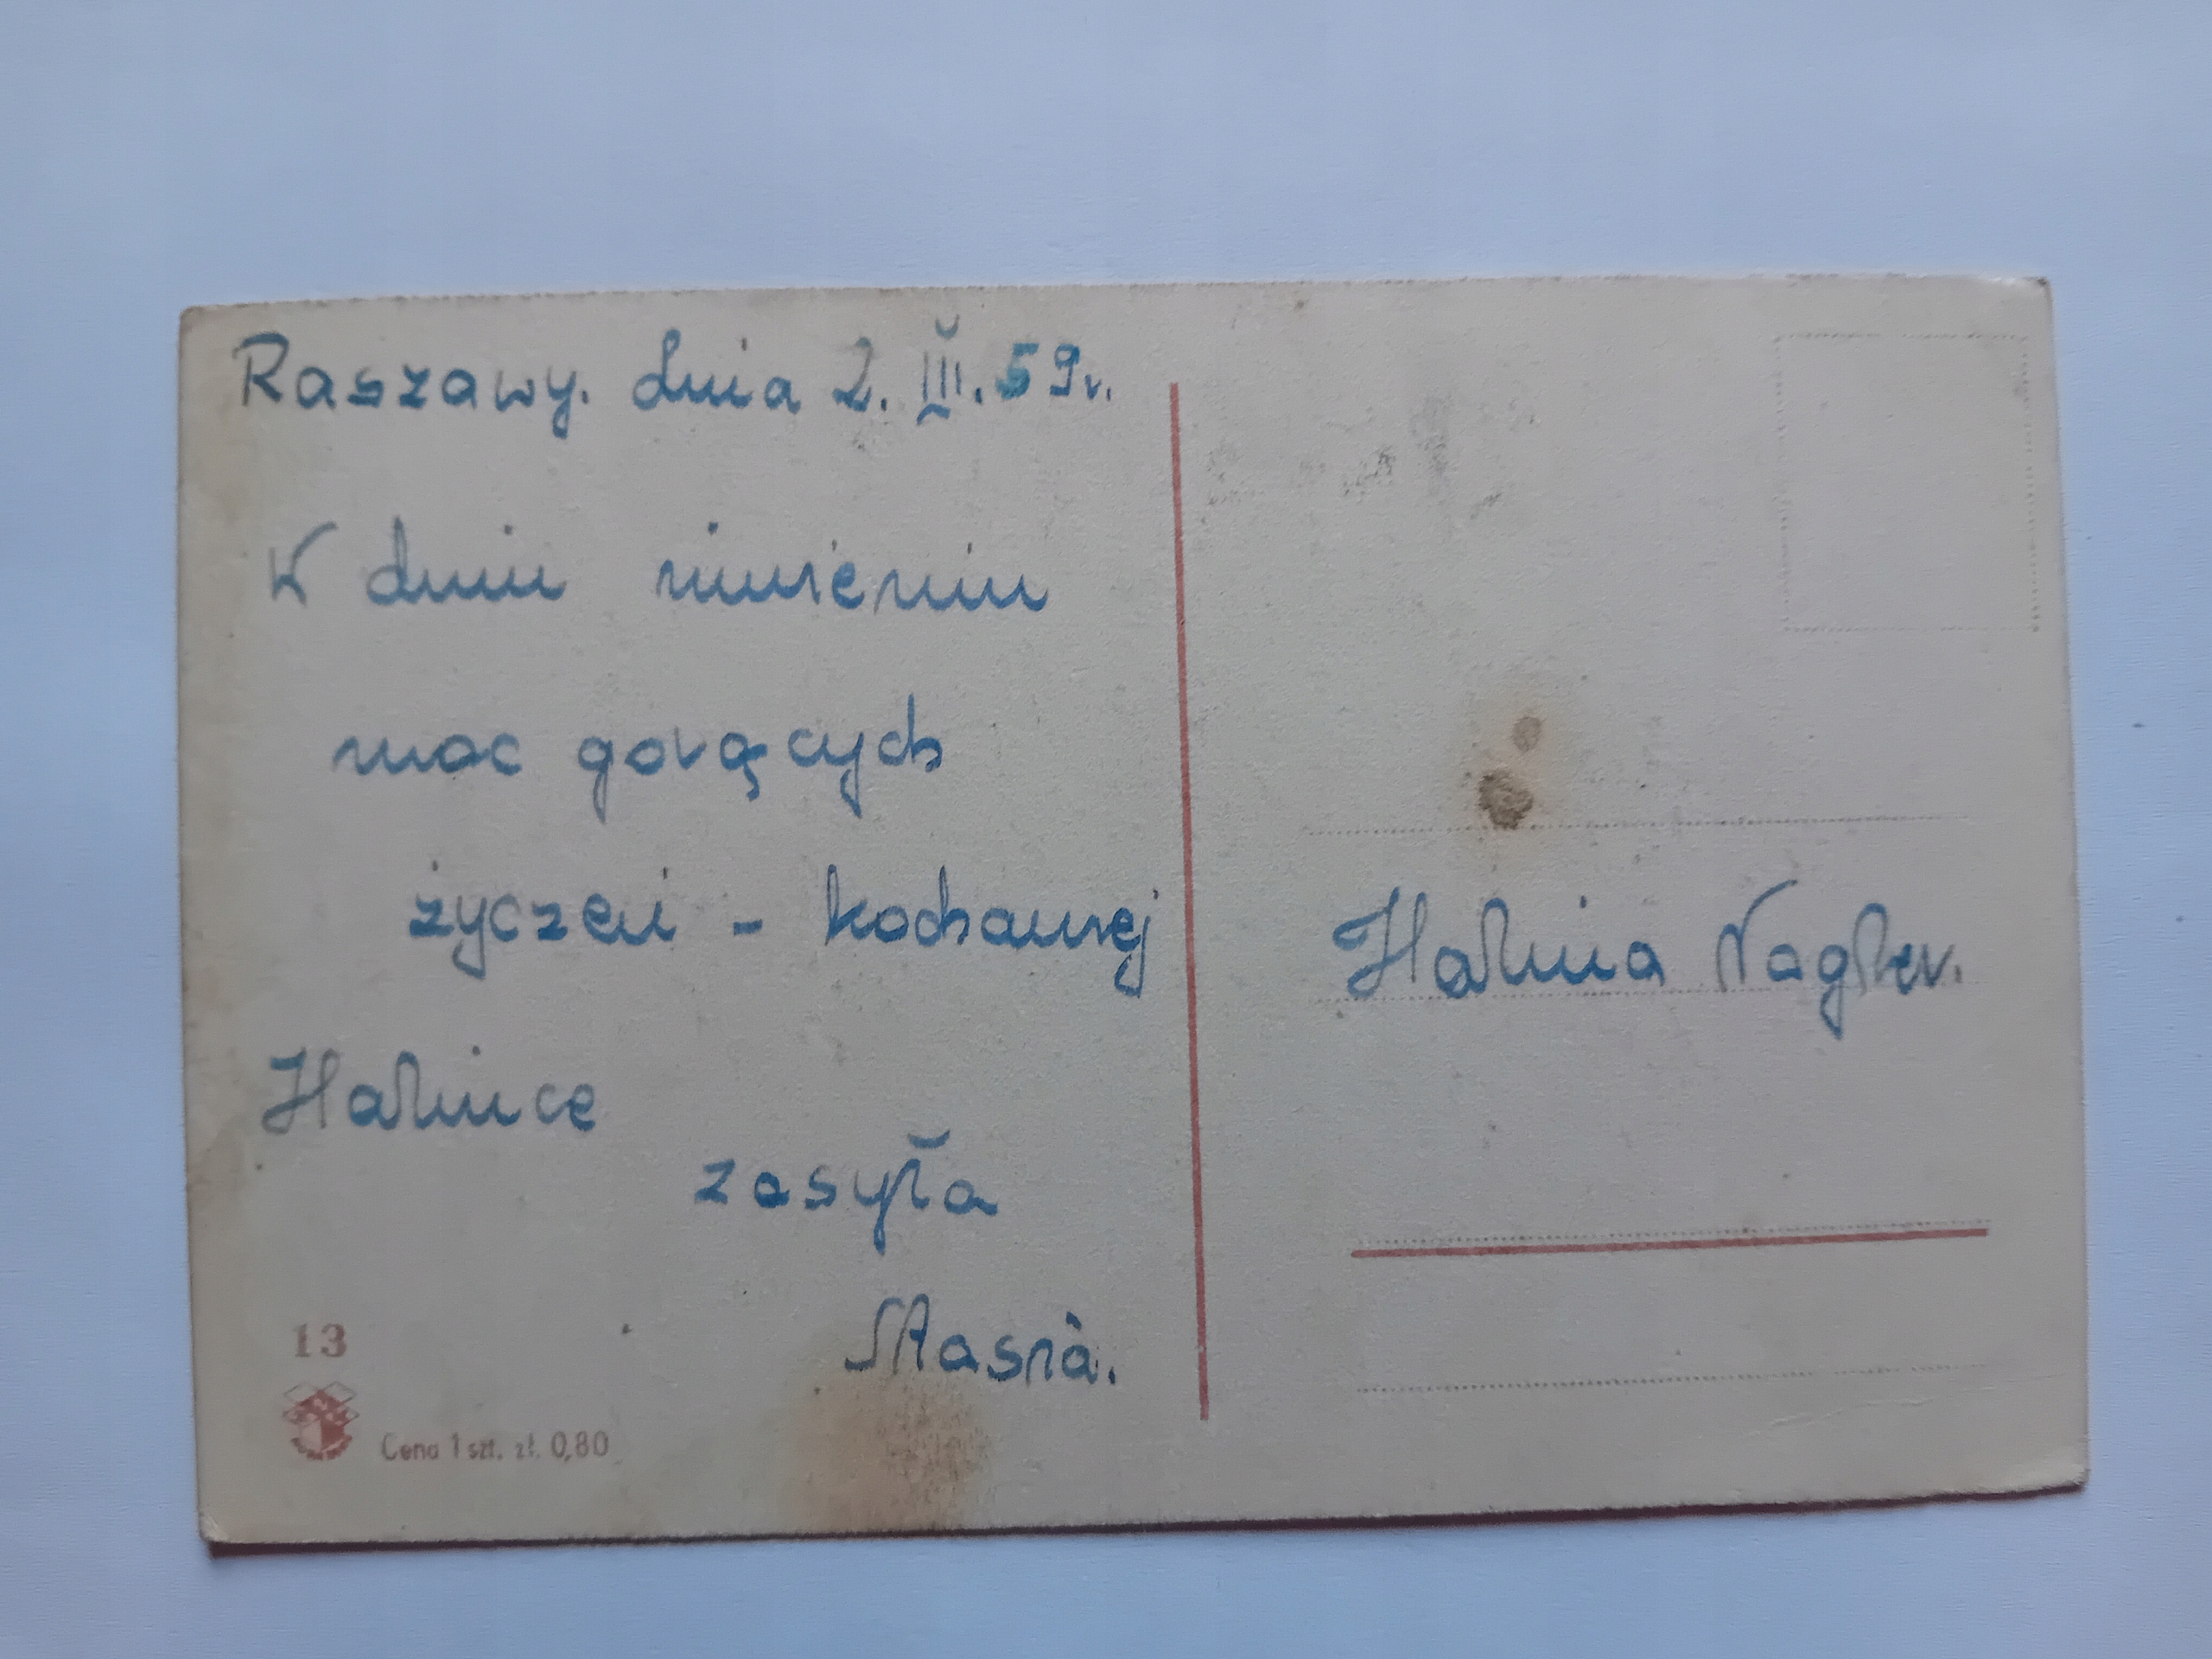 Raszawy. dnia 2. III. 59r.
W dniu imienin
moc gorących
życzeń - kochanej
Halince
zasyła
Stasia.
13
Cena 1 szt. zł. 0,80
Halina Nagler.